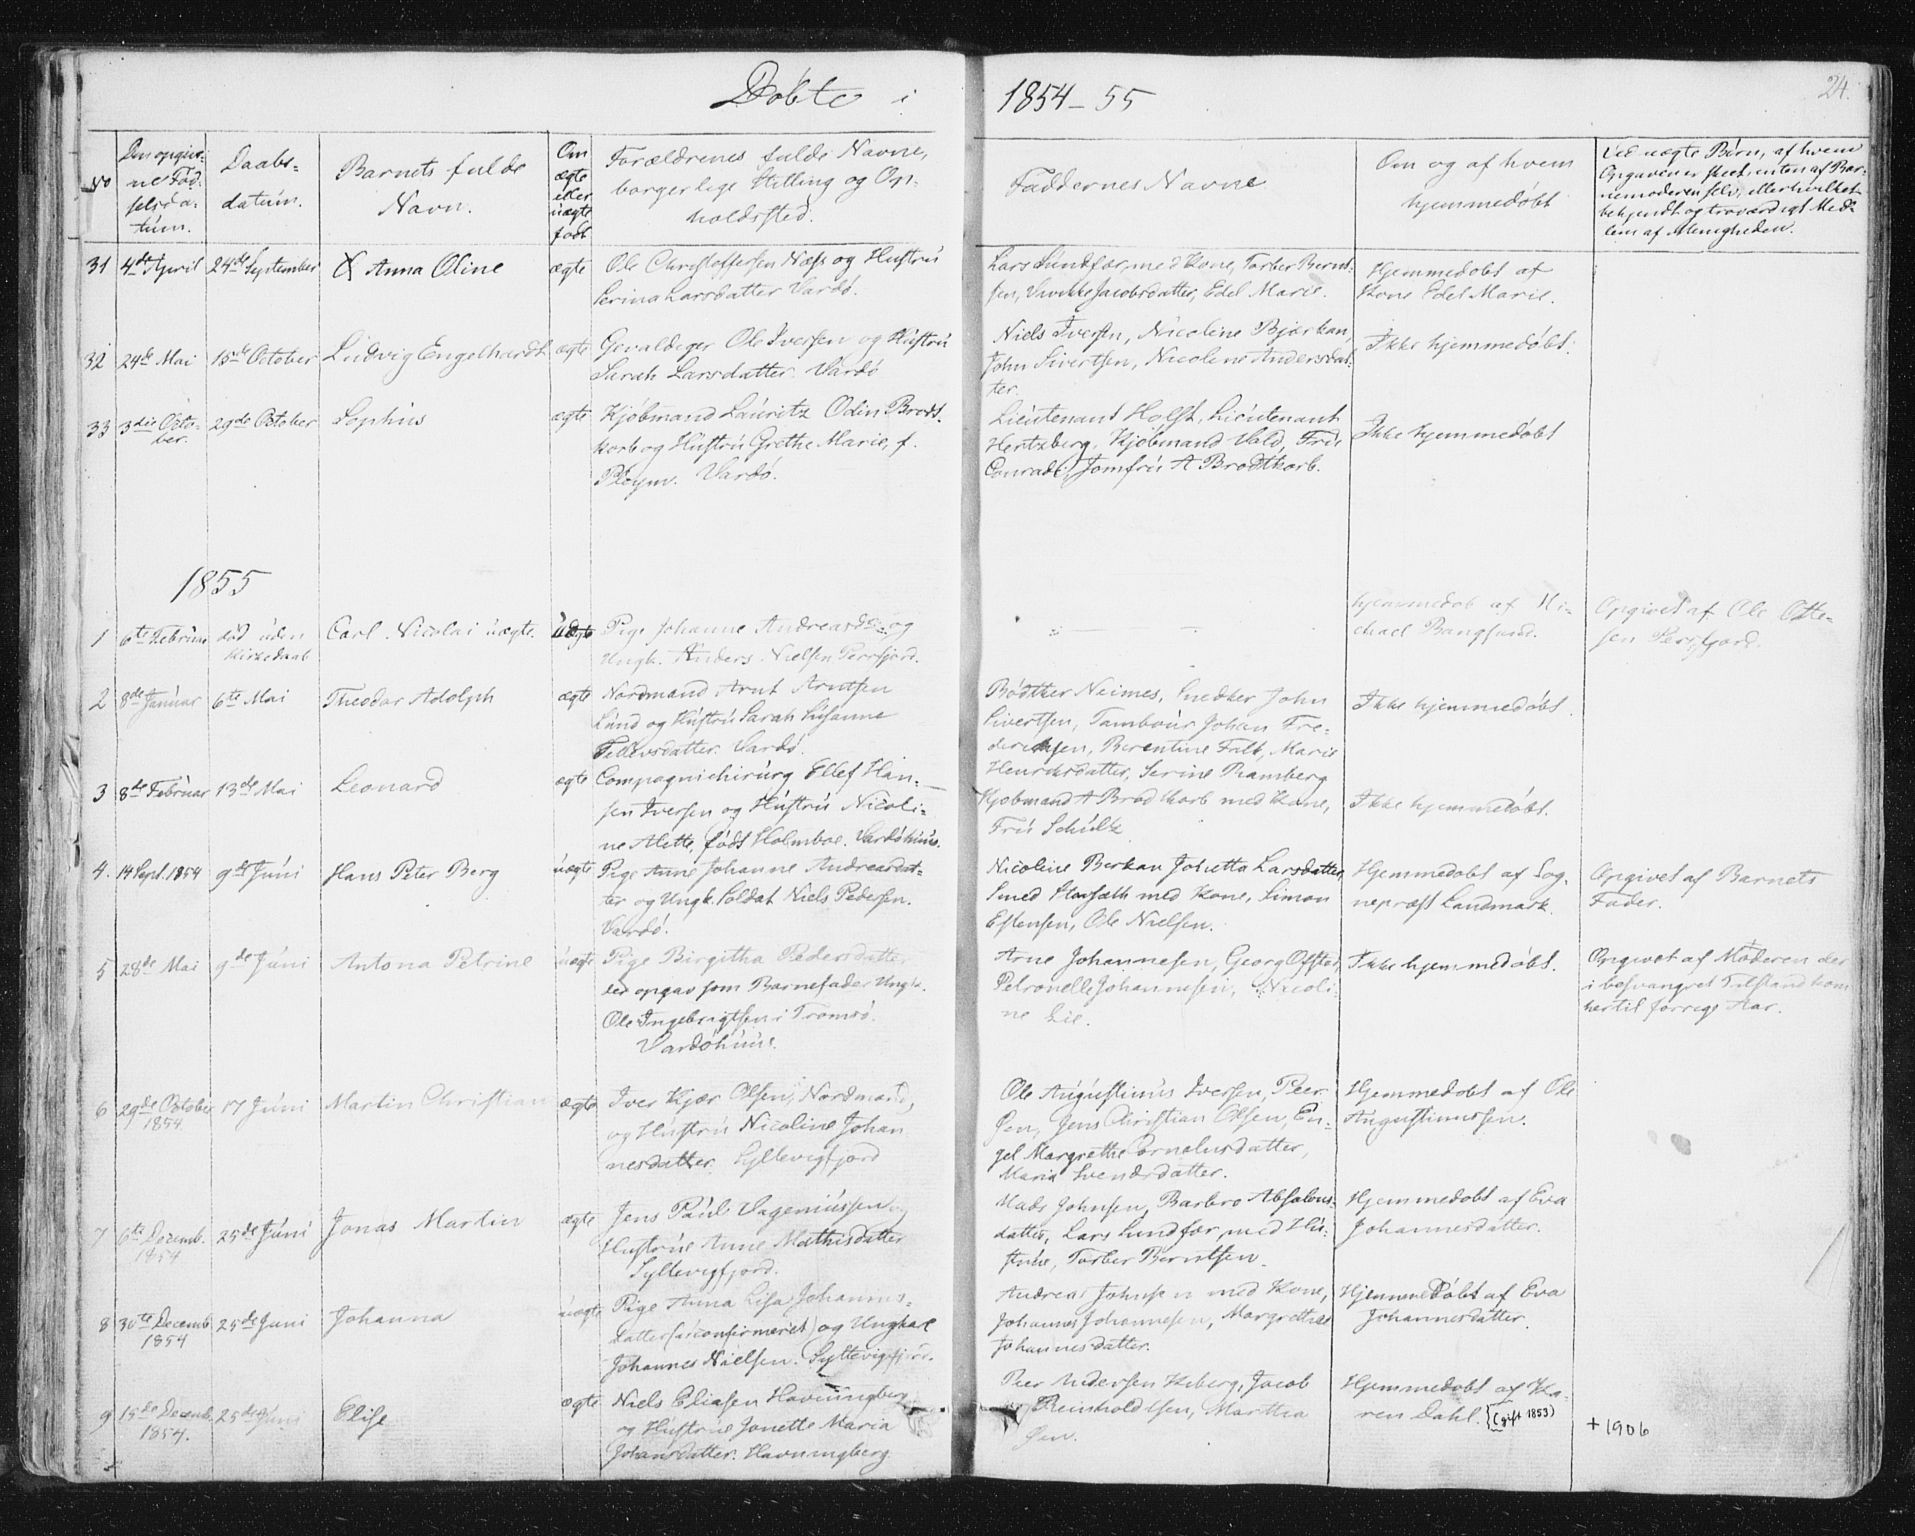 Døbte i 1854-55
24.
No
Den opgiv-
ne Fød-
selsda-
tum.
Daabs-
datum.
Barnets fulde
Navn.
Om
ægte
eller
uægte
født
Forældrenes fulde Navne,
borgerlige Stilling og Op-
holdssted.
Faddernes Navne
Om og af hvem
hjemmedøbt
Ved uægte Børn, af hvem
Opgaven er skeet, enten af Bar-
nemoderen selv, eller hvilket
bekjendt og troværdigt Med-
lem af Menigheden.
31 4de April 24de September Anna Oline ægte
Ole Christoffersen Næss og Hustru
Serina Larsdatter Vardø.
Lars Sundfær, med Kone, Torber Bernt-
sen, Jacobsdatter, Edel Marie.
Hjemmedøbt af
Kone Edel Marie.
32 24de Mai 15de October Ludvig Engelhardt ægte
Gevaldiger Ole Iversen og Hustru
Sarah Larsdatter. Vardø
Niels Iversen, Nicoline Bjørkan,
John Sivertsen, Nicoline Andersdat-
ter.
Ikke hjemmedøbt.
33 3die Octo-
ber. 29de October Sophus ægte
Kjøbmand Lauritz Odin Brodt-
korb og Hustru Grethe Marie, f.
Ploym. Vardø.
Lieutenant Holst, Lieutenant
Hertzberg, Kjøbmand Vald, Fru
Conradi, Jomfru A Brodtkorb.
Ikke hjemmedøbt
1855
1 6te Februar død uden
Kirkedaab Carl Nicolai uægte. uægte
Pige Johanne Andreasd. og
Ungk. Anders Nielsen Persfjord.
hjemmedøb af Mi-
chael Bangsund.
Opgivet af Ole Otte-
sen Persfjord.
2 8de Januar 6te Mai Theodor Adolph ægte
Nordmand Arnt Arntsen
Lund og Hustru Sarah Susanne
Tellevsdatter. Vardø.
Bødtker Neimes, Snedker John
Sivertsen, Tambour Johan Fre-
deriksen, Berentine Falk, Marie
Henriksdatter, Serine Ramberg
Ikke hjemmedøbt.
3 8de Februar 13de Mai Leonard ægte
Compagnichirurg Ellef Han-
sen Iversen og Hustru Nicoli-
ne Alette, født Holmboe. Vardøhuus.
Kjøbmand A Brodtkorb med Kone,
Fru Schultz
Ikke hjemmedøbt.
4. 14 Sept. 1854 9de Juni Hans Peter Berg uægte
Pige Anne Johanne Andreasdat-
ter og Ungk. Soldat Niels Pedersen.
Vardø.
Nicoline Berkan Johetta Larsdatter
Smed med Kone, Simon
Estensen, Ole Nielsen.
Hjemmedøbt af Sog-
nepræst Landmark.
Opgivet af Barnets
Fader.
5 28de Mai 9de Juni Antona Petrine uægte
Pige Birgitha Pedersdatter
der opgav som Barnefader Ungk.
Ole Ingebrigtsen i Tromsø.
Vardøhuus.
Arne Johannesen, Georg Offstad,
Petronelle Johannesen, Nicoli-
ne Lie.
Ikke hjemmedøbt.
Opgivet af Moderen der
i besvangret Tilstand kom
hertil forrige Aar.
6 29de October
1854 17 Juni Martin Christian ægte
Iver Kjær Olsen, Nordmand,
og Hustru Nicoline Johan
nesdatter Syltevigfjord
Ole Augustinus Iversen, Peer
Øen, Jens Christian Olsen, En-
gel Margrethe Cornelusdatter,
Maria Svendsdatter.
Hjemmedøbt af Ole
Augustinussen.
7 6te Decemb.
1854 25de Juni Jonas Martin ægte
Jens Paul Vageniussen og
Hustrue Anne Mathisdatter
Syltevigfjord.
Mads Johnsen, Barbro Absalons-
datter, Lars Sundfær, med Hu-
strue, Torber Berntsen.
Hjemmedøbt af Eva
Johannesdatter.
8 30te Decemb
1854 25de Juni Johanna uægte
Pige Anna Lisa Johannes-
datter (uconfirmeret) og Ungkarl
Johannes Nielsen. Syltevigfjord.
Andreas Johnsen med Kone,
Johannes Johannesen, Margrethe
Johannesdatter.
Hjemmedøbt af Eva
Johannesdatter.
9 15de Decemb.
1854. 25de Juni Elise ægte
Niels Eliasen Havningberg
og Hustrue Jonette Maria
Johansdatter. Havningberg
Peer Andersen Kiberg, Jacob
Reinholdtsen, Martha
Øen.
Hjemmedøbt af Ka-
ren Dahl. (gift 1853)
+ 1906